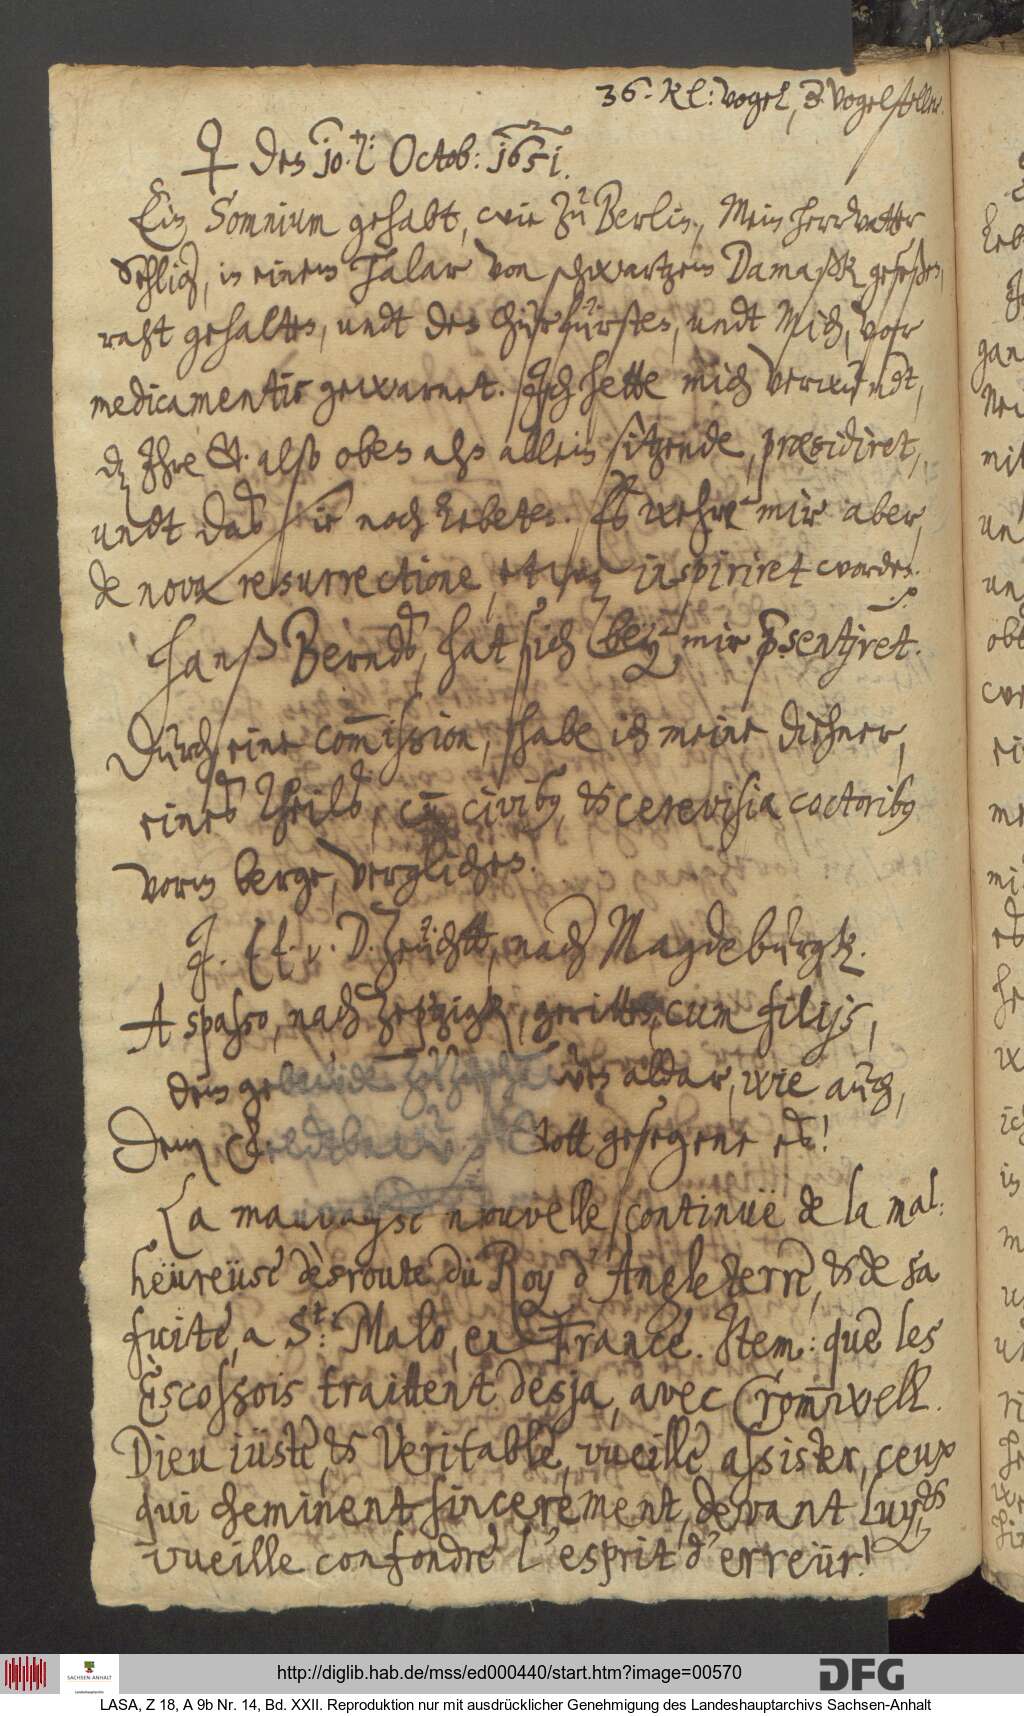 36. kl: vogel, 3. Vogelsteller.
♀ den 10.t: Octob: 1651.
Ein Somnium gehabt, wie zu Berlin, Mein herrvatter
Sehlig, in einem Talar von schwartzem Damaßk geseßen,
raht gehalten, undt den Churfürsten, undt Mich, vor
medicamentis gewarnet. Jch hette mich verwundt,
dz Jhre G. also oben ahn allein sitzende, præsidiret,
undt das Sie noch lebeten. Eß wehre mir aber,
de nova resurrectione, etwaz inspiriret worden.
Hanß Berndt, hat sich bey mir p̄sentiret.
Durch eine com̄ission, habe ich meine diehner,
eines theils, cū civib9, & cerevisia coctorib9
vorm berge, verglichen.
J. Ef. v. D. Zeuchtt, nach Magdeburgk.
A spasso, nach Zeptzigk, geritten, cum filijs,
dem ge aldar, wie auch,
Dem Gott gesegene es!
La mauvayse nouvelle continuë de la mal:
heüreüse dèsroute du Roy d'Angleterre, & de sa
fuite, a St: Malo, en France. Jtem: que les
Escossois traittent desja, avec Crom̄well.
Dieu iüste, & Veritable, vueille assister, ceux
qui cheminent sincerement, devant Luy, &
vueille confondre l'esprit d'erreür!
http://diglib.hab.de/mss/ed000440/start.htm?image=00570
SACHSEN-ANHALT
Landeshauptarchiv
DFG
LASA, Z 18, A 9b Nr. 14, Bd. XXII. Reproduktion nur mit ausdrücklicher Genehmigung des Landeshauptarchivs Sachsen-Anhalt